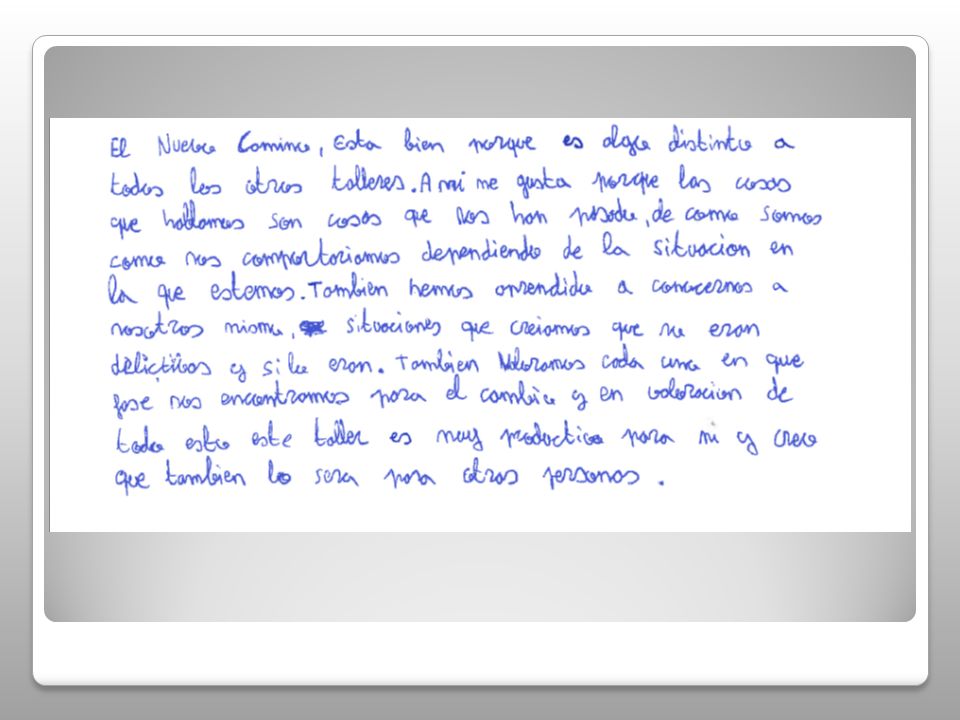 El Nuevo Camino, Esta bien porque es algo distinto a
todos los otros talleres. A mi me gusta porque las cosas
que hablamos son cosas que nos han pasado, de como somos
como nos comportariamos dependiendo de la situacion en
la que estemos. Tambien hemos aprendido a conocernos a
nosotros mismo, situaciones que creiamos que no eran
delictivas y si lo eran. Tambien Valoramos cada uno en que
fase nos encontramos para el cambio y en valoracion de
todo esto este taller es muy productivo para mi y creo
que tambien lo sera para otras personas.